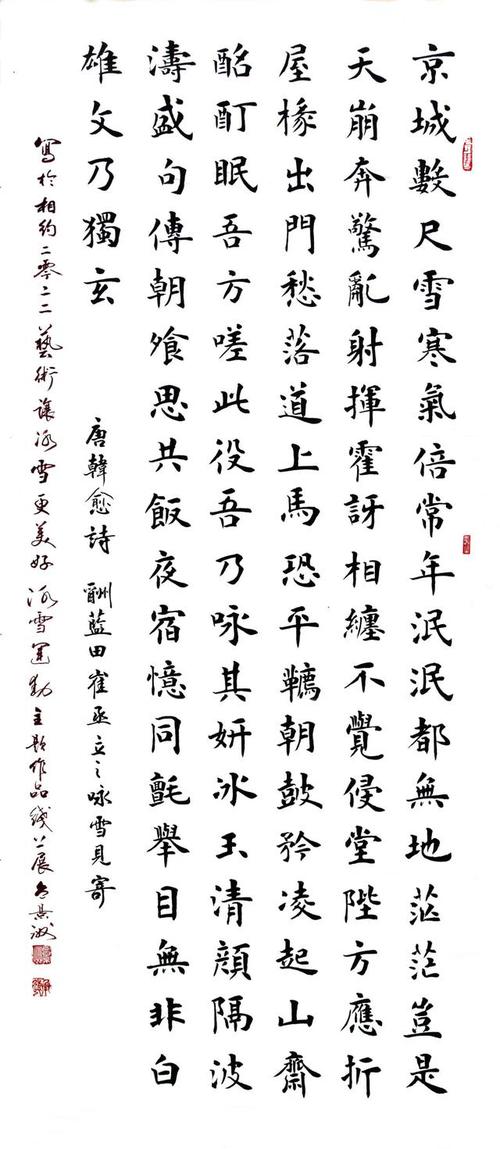 京城數尺雪寒氣倍常年泯泯都無地茫茫豈是
天崩奔驚亂射揮霍訝相纏不覺侵堂陛方應折
屋椽出門愁落道上馬恐平韉朝鼓矜凌起山齋
酩酊眠吾方嗟此役吾乃咏其妍冰玉清顏隔波
濤盛句傳朝飱思共飯夜宿憶同氈舉目無非白
雄文乃獨玄
唐韓愈詩 酬藍田崔丞立之咏雪見寄
寫於相約二零二二藝術讓冰雪更美好冰雪運動主題作品綫上展